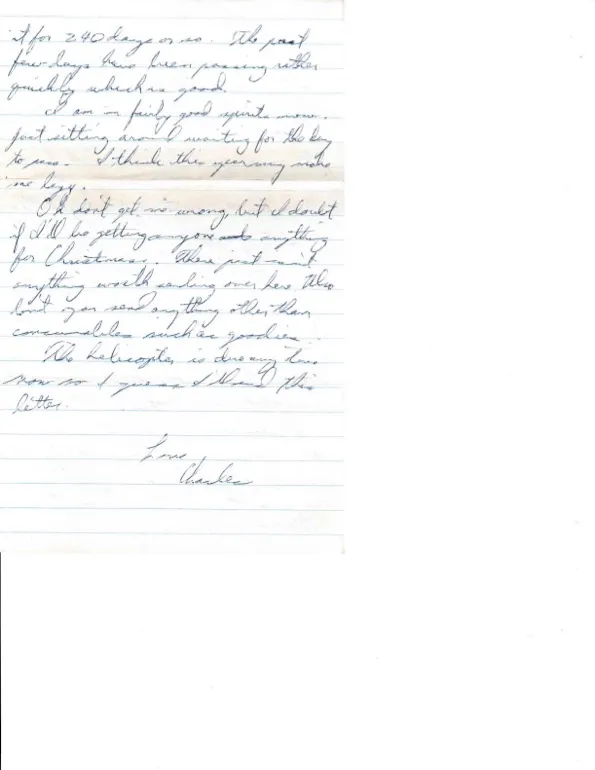 it for 240 days or so. The past
few days have been passing rather
quickly which is good.
I am in fairly good spirits now.
Just sitting around waiting for the day
to pass. I think this year may make
me lazy.
Oh don't get me wrong, but I doubt
if I'll be getting anyone anything
for Christmas. There just isn't
anything worth sending over here. Also
don't you send anything other than
consumables such as goodies.
The helicopter is due any time
now so I guess I'll end this
letter.
Love,
Charles